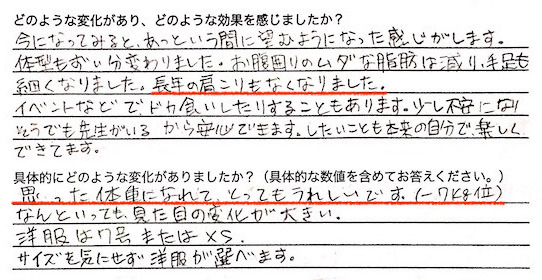 どのような変化があり、どのような効果を感じましたか？
今になってみると、あっという間に望むようになった感じがします。
体型もずい分変わりました。お腹周りのムダな脂肪は減り、手足も
細くなりました。長年の肩こりもなくなりました。
イベントなどでドカ食いしたりすることもあります。少し不安になり
そうでも先生がいるから安心できます。したいことも本来の自分で、楽しく
できてます。
具体的にどのような変化がありましたか？（具体的な数値を含めてお答えください。）
思った体重になれて、とってもうれしいです。(－7kg位)
なんといっても、見た目の変化が大きい。
洋服は7号またはXS。
サイズを気にせず洋服が選べます。